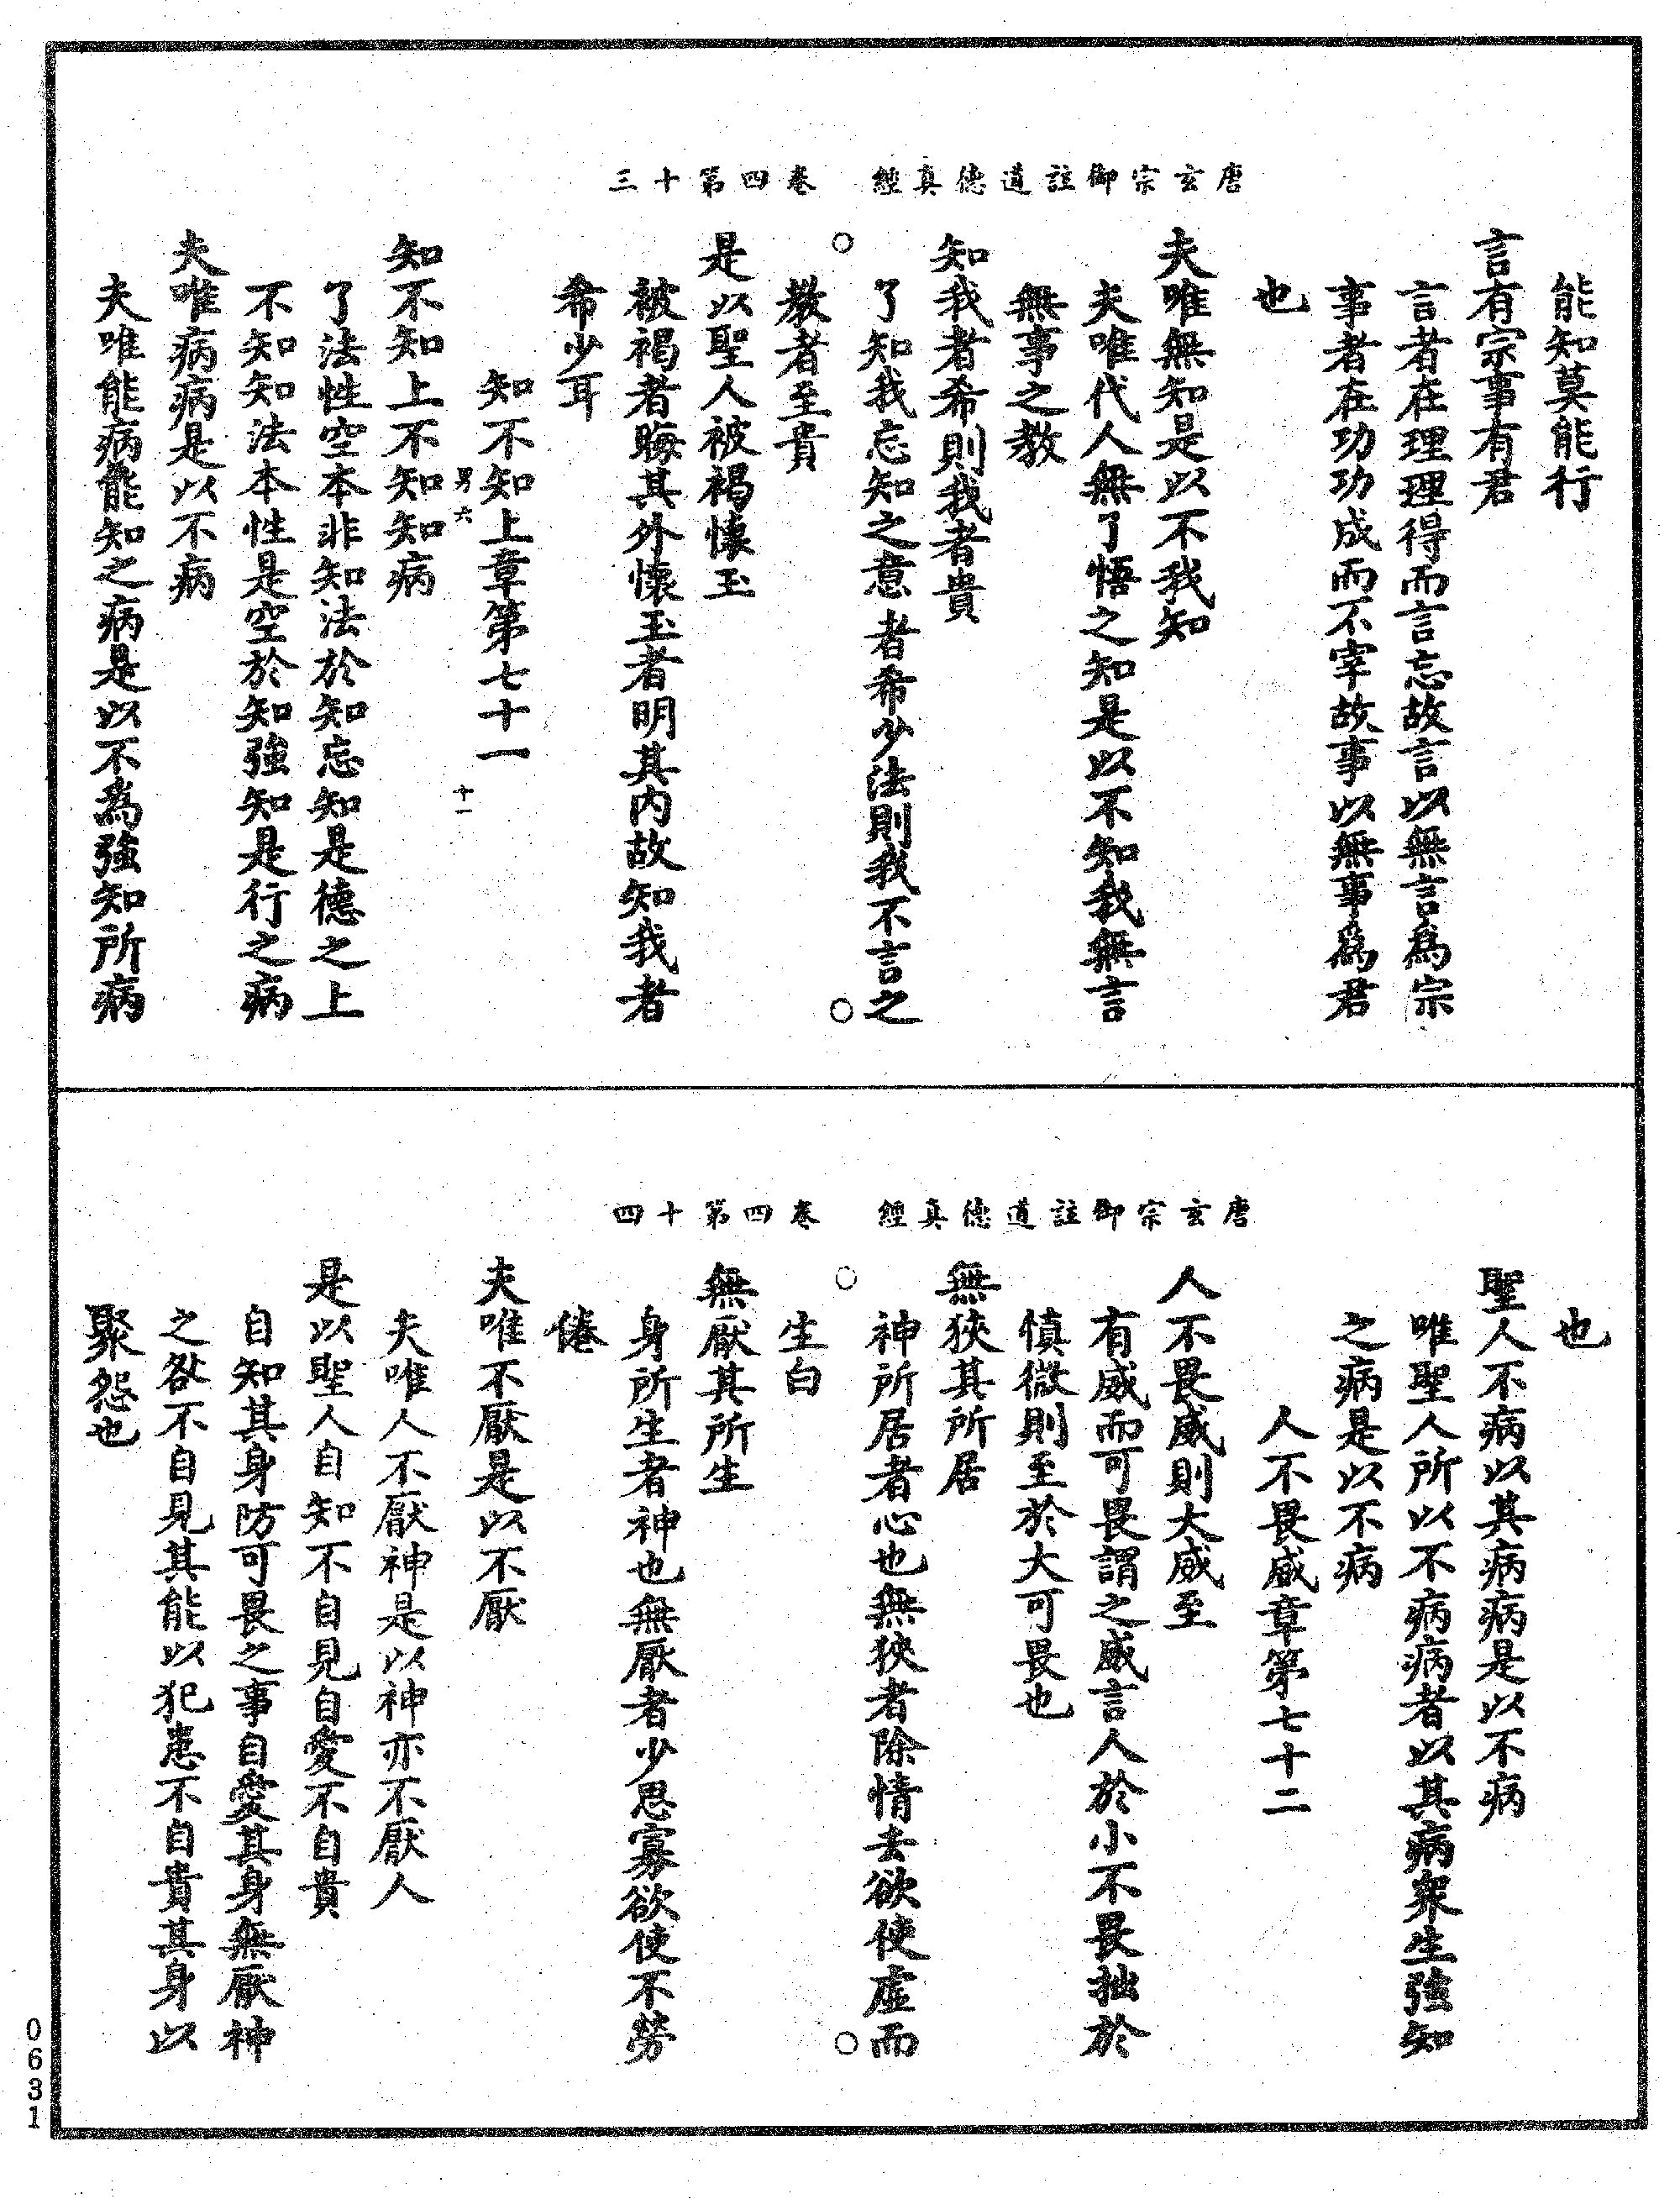 唐玄宗御註道德真經　卷四第十三
能知莫能行
言有宗事有君
言者在理理得而言忘故言以無言為宗
事者在功功成而不宰故事以無事為君
也
夫唯無知是以不我知
夫唯代人無了悟之知是以不知我無言
無事之教
知我者希則我者貴
了知我忘知之意者希少法則我不言之
教者至貴
是以聖人被褐懷玉
被褐者晦其外懷玉者明其內故知我者
希少耳
知不知上章第七十一
男六　十一
知不知上不知知病
了法性空本非知法於知忘知是德之上
不知知法本性是空於知強知是行之病
夫唯病病是以不病
夫唯能病能知之病是以不為強知所病
唐玄宗御註道德真經　卷四第十四
也
聖人不病以其病病是以不病
唯聖人所以不病病者以其病衆生強知
之病是以不病
人不畏威章第七十二
人不畏威則大威至
有威而可畏謂之威言人於小不畏拙於
慎微則至於大可畏也
無狹其所居
神所居者心也無狹者除情去欲使虛而
生白
無厭其所生
身所生者神也無厭者少思寡欲使不勞
倦
夫唯不厭是以不厭
夫唯人不厭神是以神亦不厭人
是以聖人自知不自見自愛不自貴
自知其身防可畏之事自愛其身無厭神
之咎不自見其能以犯患不自貴其身以
聚怨也
0631